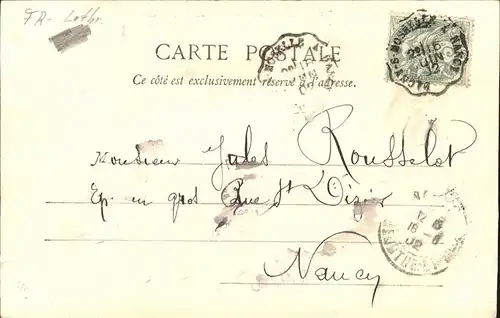 FR- Lothr.
CARTE POSTALE
Ce côté est exclusivement réservé à l'adresse.
Monsieur Jules Rousselot
Ep. en gros Rue St Dizier
Nancy